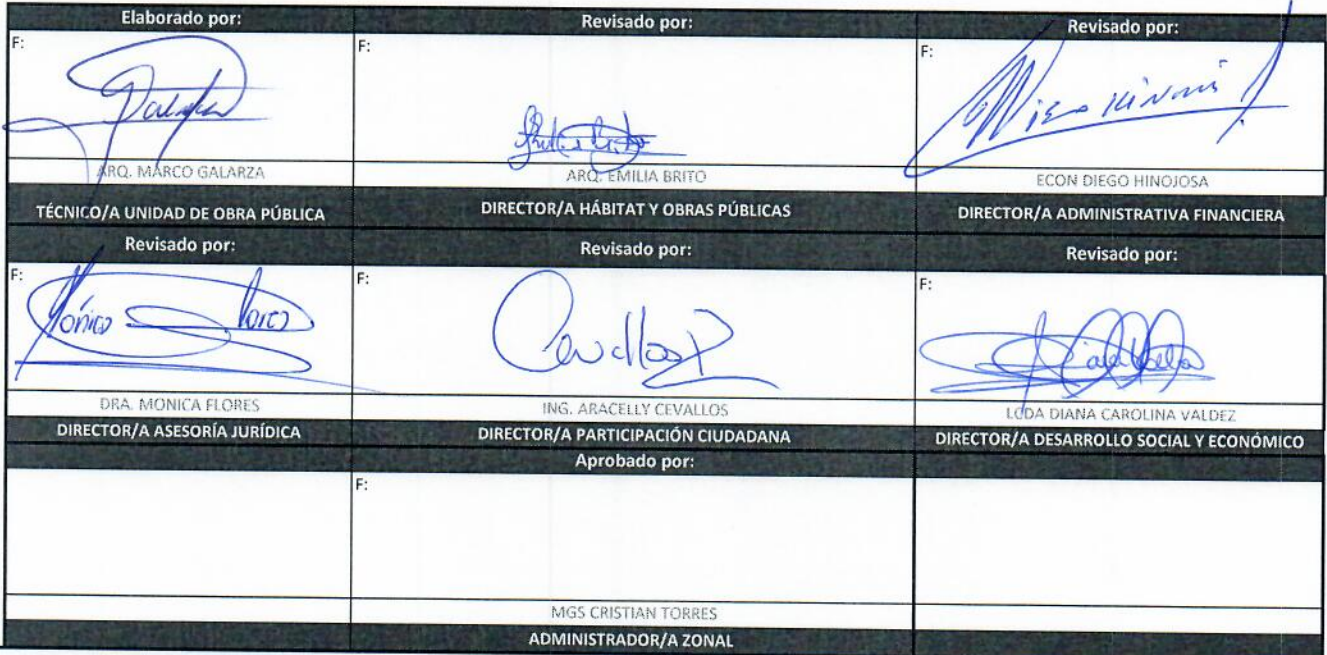 Elaborado por:
Revisado por:
Revisado por:
F:
F:
F:
ARQ. MARCO GALARZA
ARQ. EMILIA BRITO
ECON DIEGO HINOJOSA
TÉCNICO/A UNIDAD DE OBRA PÚBLICA
DIRECTOR/A HÁBITAT Y OBRAS PÚBLICAS
DIRECTOR/A ADMINISTRATIVA FINANCIERA
Revisado por:
Revisado por:
Revisado por:
F:
F:
F:
Mónica
Cevallos
DRA. MONICA FLORES
ING. ARACELLY CEVALLOS
LCDA DIANA CAROLINA VALDEZ
DIRECTOR/A ASESORÍA JURÍDICA
DIRECTOR/A PARTICIPACIÓN CIUDADANA
DIRECTOR/A DESARROLLO SOCIAL Y ECONÓMICO
Aprobado por:
F:
MGS CRISTIAN TORRES
ADMINISTRADOR/A ZONAL